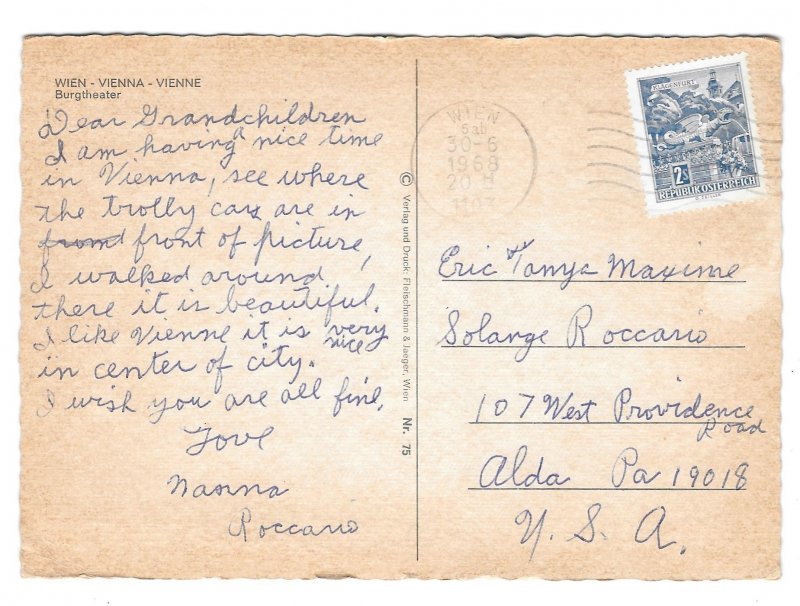 WIEN - VIENNA - VIENNE
Burgtheater
Dear Grandchildren
I am having a nice time
in Vienna, see where
the trolly cars are in
front of picture,
I walked around
there it is beautiful.
I like Vienne it is very
nice
in center of city.
I wish you are all fine.
Love
Nanna
Roccario
© Verlag und Druck: Fleischmann & Jaeger, Wien
Nr. 75
WIEN
30-6
1968
KLAGENFURT
2S
REPUBLIK ÖSTERREICH
Eric Tanya Maxime
Solange Roccario
107 West Providence
Road
Alda Pa 19018
U. S. A.